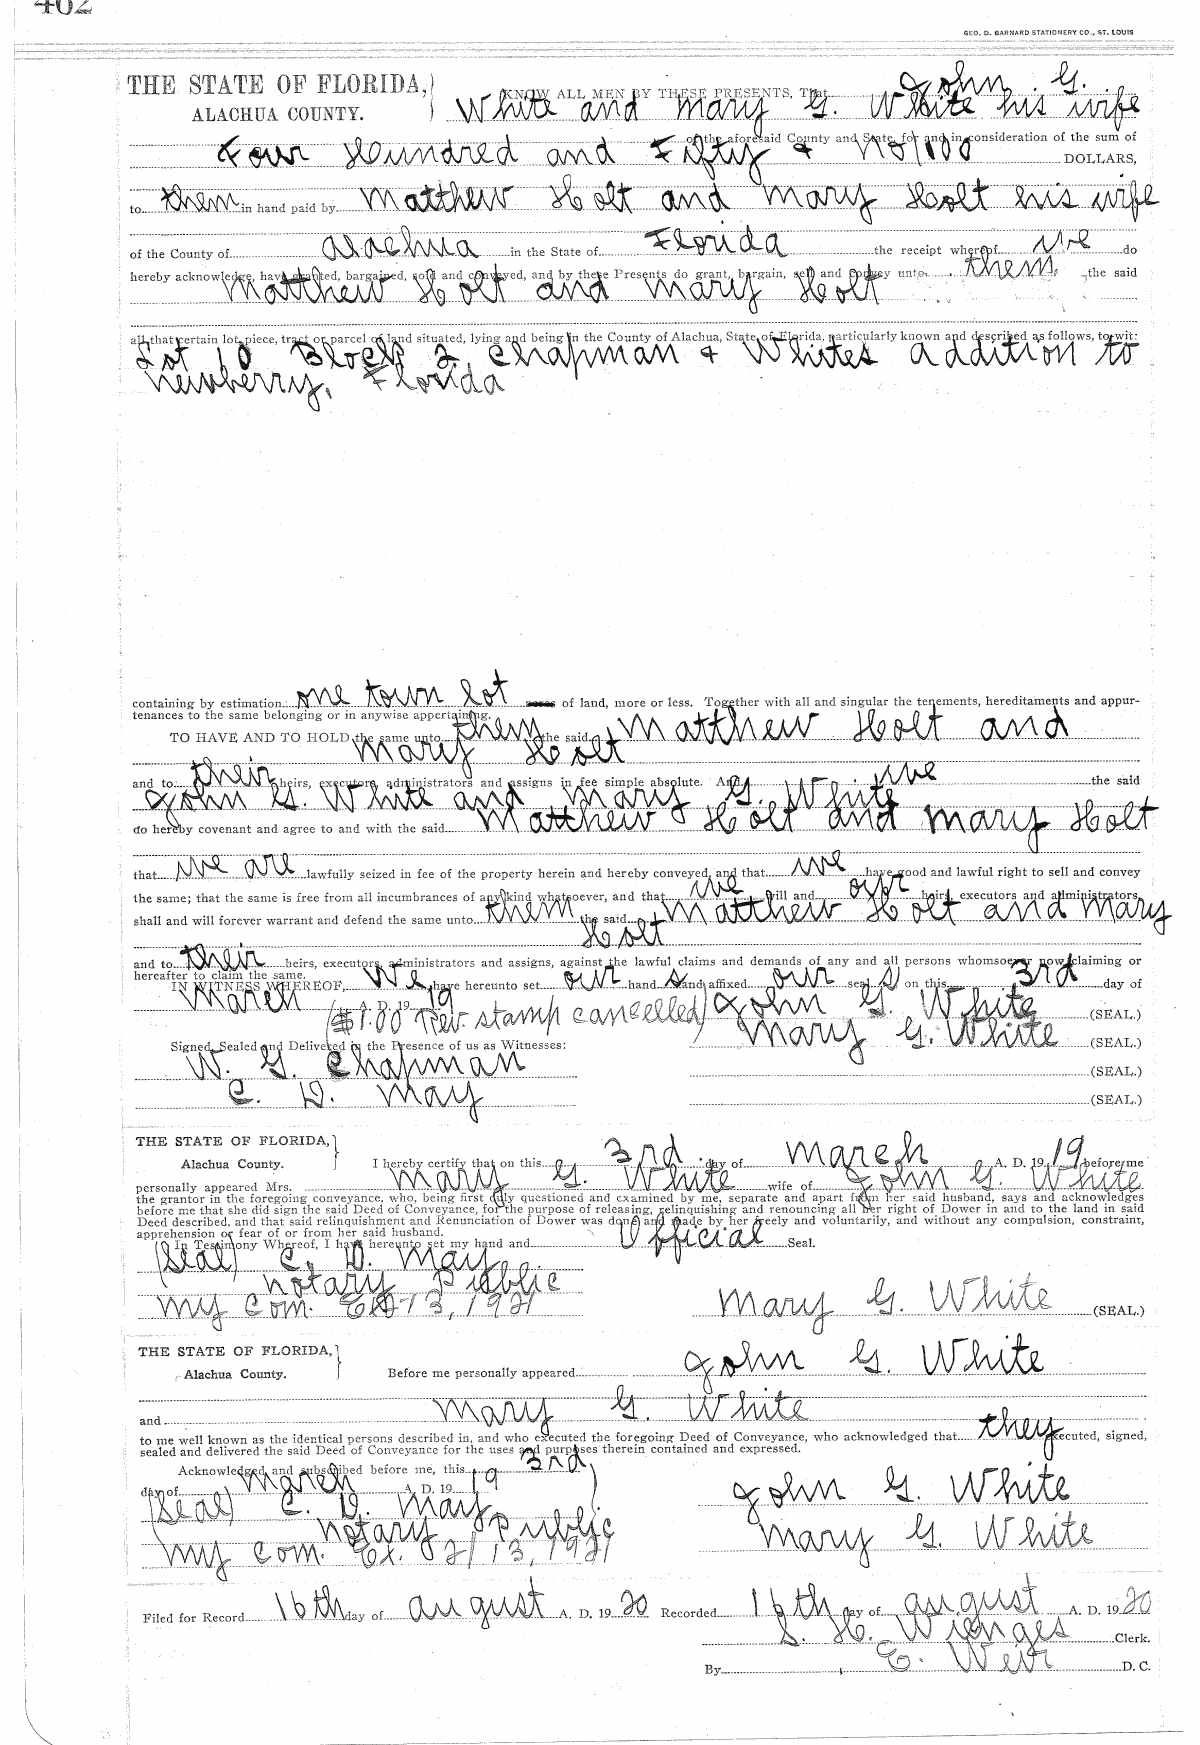 402
GEO. D. BARNARD STATIONERY CO., ST. LOUIS
THE STATE OF FLORIDA,
ALACHUA COUNTY.
KNOW ALL MEN BY THESE PRESENTS, That John G.
White and Mary G. White his wife
of the aforesaid County and State, for and in consideration of the sum of
Four Hundred and Fifty & no/100 DOLLARS,
to them in hand paid by Matthew Holt and Mary Holt his wife
of the County of Alachua in the State of Florida the receipt whereof we do
hereby acknowledge, have granted, bargained, sold and conveyed, and by these Presents do grant, bargain, sell and convey unto them the said
Matthew Holt and Mary Holt
all that certain lot, piece, tract or parcel of land situated, lying and being in the County of Alachua, State of Florida, particularly known and described as follows, to wit:
Lot 10 Block 2 Chapman & Whites addition to
Newberry, Florida
containing by estimation one town lot acres of land, more or less. Together with all and singular the tenements, hereditaments and appur-
tenances to the same belonging or in anywise appertaining.
TO HAVE AND TO HOLD the same unto them the said Matthew Holt and
Mary Holt
and to their heirs, executors, administrators and assigns in fee simple absolute. And we the said
John G. White and Mary G. White
do hereby covenant and agree to and with the said Matthew Holt and Mary Holt
that we are lawfully seized in fee of the property herein and hereby conveyed, and that we have good and lawful right to sell and convey
the same; that the same is free from all incumbrances of any kind whatsoever, and that we will and our heirs, executors and administrators
shall and will forever warrant and defend the same unto them the said Matthew Holt and Mary
Holt
and to their heirs, executors, administrators and assigns, against the lawful claims and demands of any and all persons whomsoever now claiming or
hereafter to claim the same.
IN WITNESS WHEREOF, We have hereunto set our hand s and affixed our seal s on this 3rd day of
March A. D. 19 19
($1.00 Rev. stamp cancelled) John G. White (SEAL.)
Mary G. White (SEAL.)
Signed, Sealed and Delivered in the Presence of us as Witnesses:
W. G. Chapman (SEAL.)
C. D. May (SEAL.)
THE STATE OF FLORIDA,
Alachua County.
I hereby certify that on this 3rd day of March A. D. 19 19 before me
personally appeared Mrs. Mary G. White wife of John G. White
the grantor in the foregoing conveyance, who, being first duly questioned and examined by me, separate and apart from her said husband, says and acknowledges
before me that she did sign the said Deed of Conveyance, for the purpose of releasing, relinquishing and renouncing all her right of Dower in and to the land in said
Deed described, and that said relinquishment and Renunciation of Dower was done and made by her freely and voluntarily, and without any compulsion, constraint,
apprehension or fear of or from her said husband.
In Testimony Whereof, I have hereunto set my hand and Official Seal.
(Seal) C. D. May
Notary Public
My Com. 13, 1921
Mary G. White (SEAL.)
THE STATE OF FLORIDA,
Alachua County.
Before me personally appeared John G. White
and Mary G. White
to me well known as the identical persons described in, and who executed the foregoing Deed of Conveyance, who acknowledged that they executed, signed,
sealed and delivered the said Deed of Conveyance for the uses and purposes therein contained and expressed.
Acknowledged and subscribed before me, this 3rd
day of March A. D. 19 19
(Seal) C. D. May
Notary Public
My Com. Ex. 02/13, 1921
John G. White
Mary G. White
Filed for Record 16th day of August A. D. 19 20 Recorded 16th day of August A. D. 19 20
S. H. Wienges Clerk.
By E. Weir D. C.